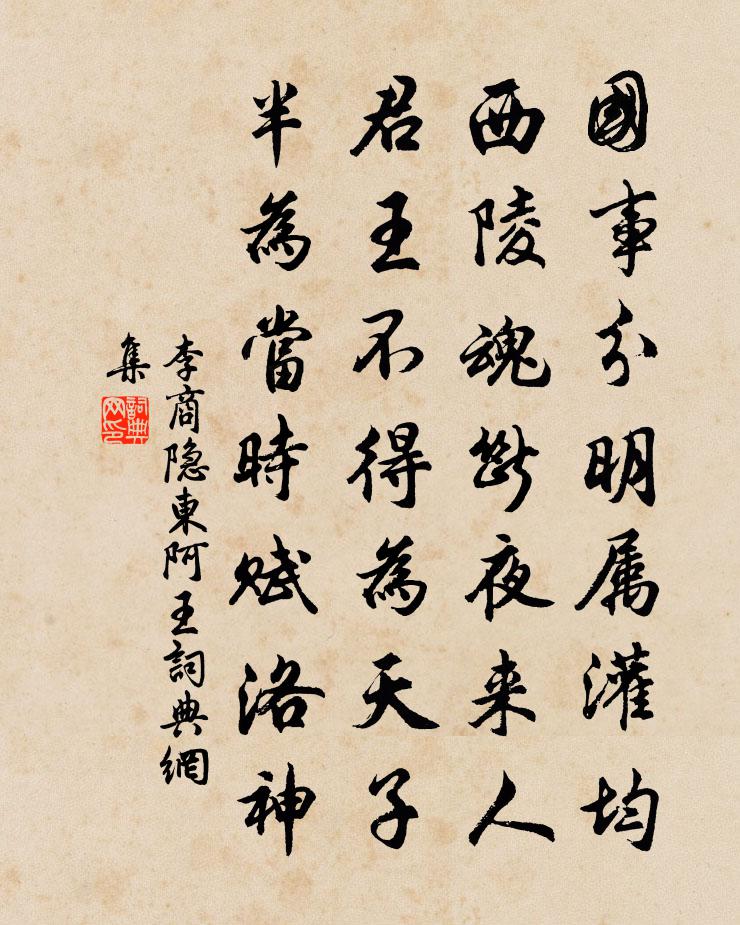 國事分明属灌均
西陵魂斷夜来人
君王不得為天子
半為當時賦洛神
李商隐東阿王詞典網
集
詞典网印